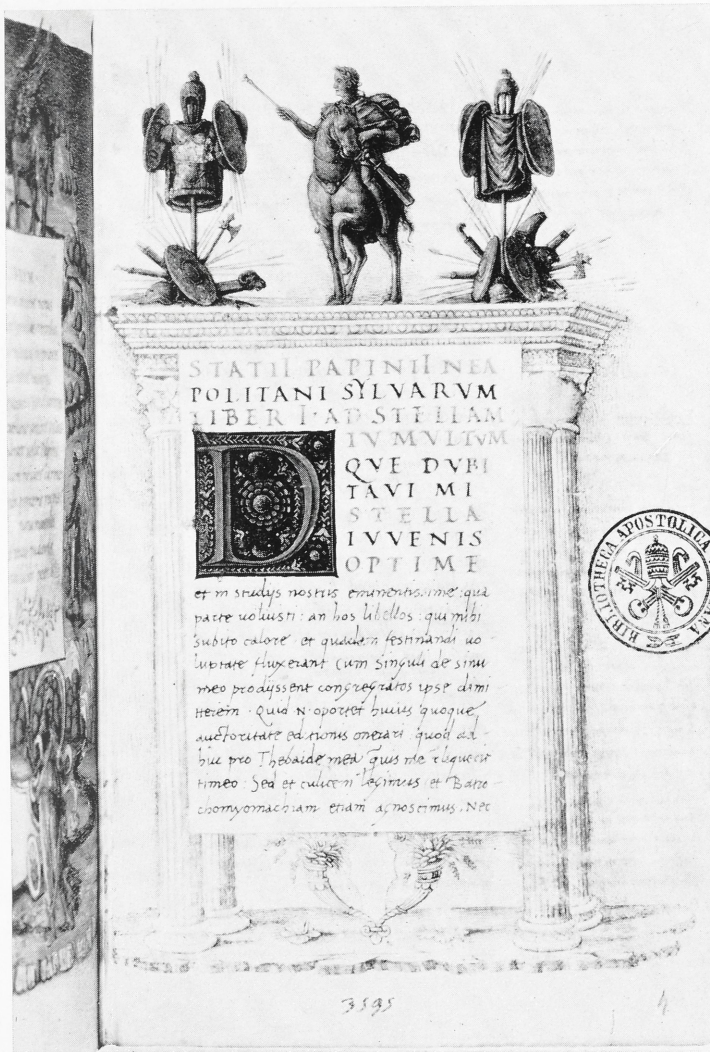 STATII PAPINII NEA
POLITANI SYLVARVM
LIBER I · AD STELLAM
DIU MVLTVM
QVE DVBI
TAVI MI
STELLA
IVVENIS
OPTIME
et in studijs nostris eminentissime: qua
parte voluisti: an hos libellos: qui mihi
subito calore et quadam festinandi uo
luptate fluxerant cum singuli de sinu
meo prodijssent congregatos ipse dimi
tterem. Quid N. oportet huius quoque
auctoritate editionis onerari quod ad
huc pro Thebaide mea quis me
timeo: Sed et culicen legimus et Batro
chomyomachiam etiam agnoscimus. Nec
BIBLIOTHECA APOSTOLICA
3595
4